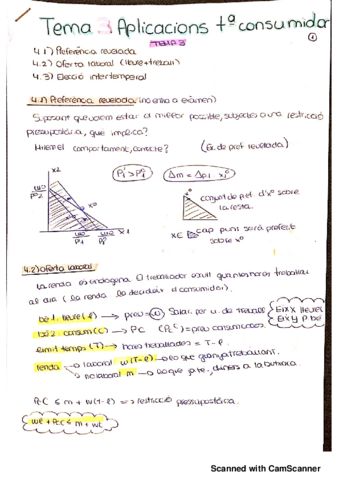 Tema 3 Aplicacions tª consumidor
TEMA 3
①
4.1) Preferència revelada
4.2) Oferta laboral (lleure + treball)
4.3) Elecció intertemporal
4.1) Preferència revelada: (no entra a examen)
Suposant que volem estar al millor possible, subjectes a una restricció
pressupostària, què implica?
Mirem el comportament, correcte? (Ex. de pref revelada)
x2
P1 > P1º
Δm = Δp1 · x1º
x0
conjunt de pref. d'xº sobre
la resta.
x1
cap punt serà preferit
sobre xº
4.2) Oferta laboral
La renda és endògena. El treballador escull quantes hores treballar
al dia (la renda la decideix el consumidor).
bé 1. lleure (l) → preu = w Salari per u. de treball
Eix X lleure
Eix Y p. bé
bé 2 consum (C) → PC (Pc = preu consum)
límit temps (T) → hores treballades = T - l.
renda → laboral w(T-l) → el que guanya treballant.
→ no laboral m →
Pc C ≤ m + w(T-l) => restricció pressupostària.
wl + PcC ≤ m + wT
Scanned with CamScanner